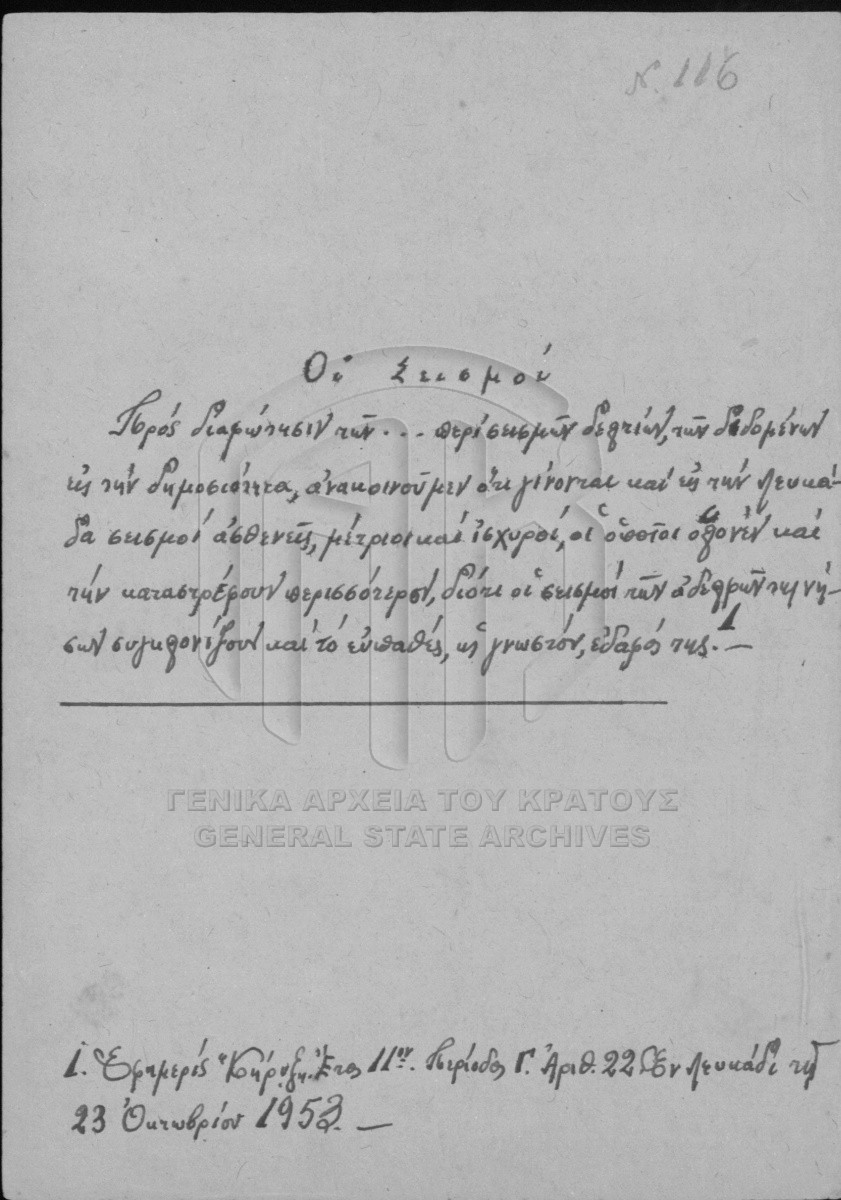 Ν. 116
Οἱ Σεισμοί
Πρός διαφώτησιν τῶν ... περί σεισμῶν δελτίων, τῶν διδομένων
εἰς τήν δημοσιότητα, ἀνακοινοῦμεν ὅτι γίνονται καί εἰς τήν Λευκά-
δα σεισμοί ἀσθενεῖς, μέτριοι καί ἰσχυροί, οἱ ὁποῖοι ὁλονέν καί
τήν καταστρέφουν περισσότερον, διότι οἱ σεισμοί τῶν ἀδελφῶν της νή-
σων συγκλονίζουν καί τό εὐπαθές, ὡς γνωστόν, ἔδαφός της.1 —
ΓΕΝΙΚΑ ΑΡΧΕΙΑ ΤΟΥ ΚΡΑΤΟΥΣ
GENERAL STATE ARCHIVES
1. Ἐφημερίς "Κήρυξ". Ἔτος 11ον. Περίοδος Γ. Ἀριθ. 22 Ἐν Λευκάδι τῇ
23 Ὀκτωβρίου 1953. —